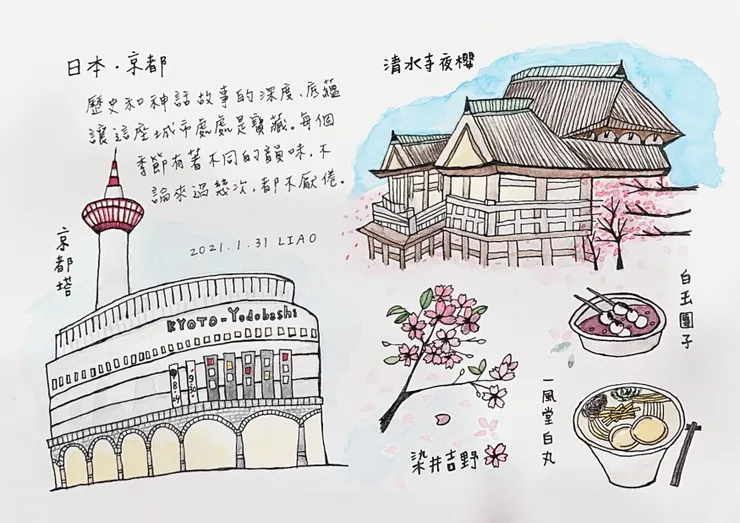 日本・京都
歷史和神話故事的深度、底蘊
讓這座城市處處是寶藏。每個
季節有著不同的韻味，不
論來過幾次，都不厭倦。
2021.1.31 LIAO
京都塔
KYOTO-Yodobashi
清水寺夜櫻
白玉團子
一風堂白丸
染井吉野